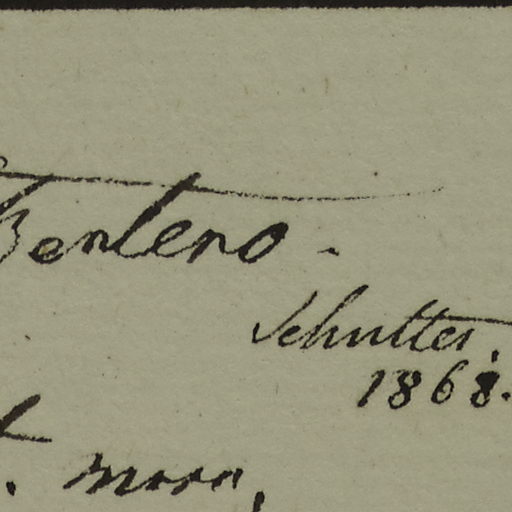 Zenteno.
Schutter.
1868.
t. mora,